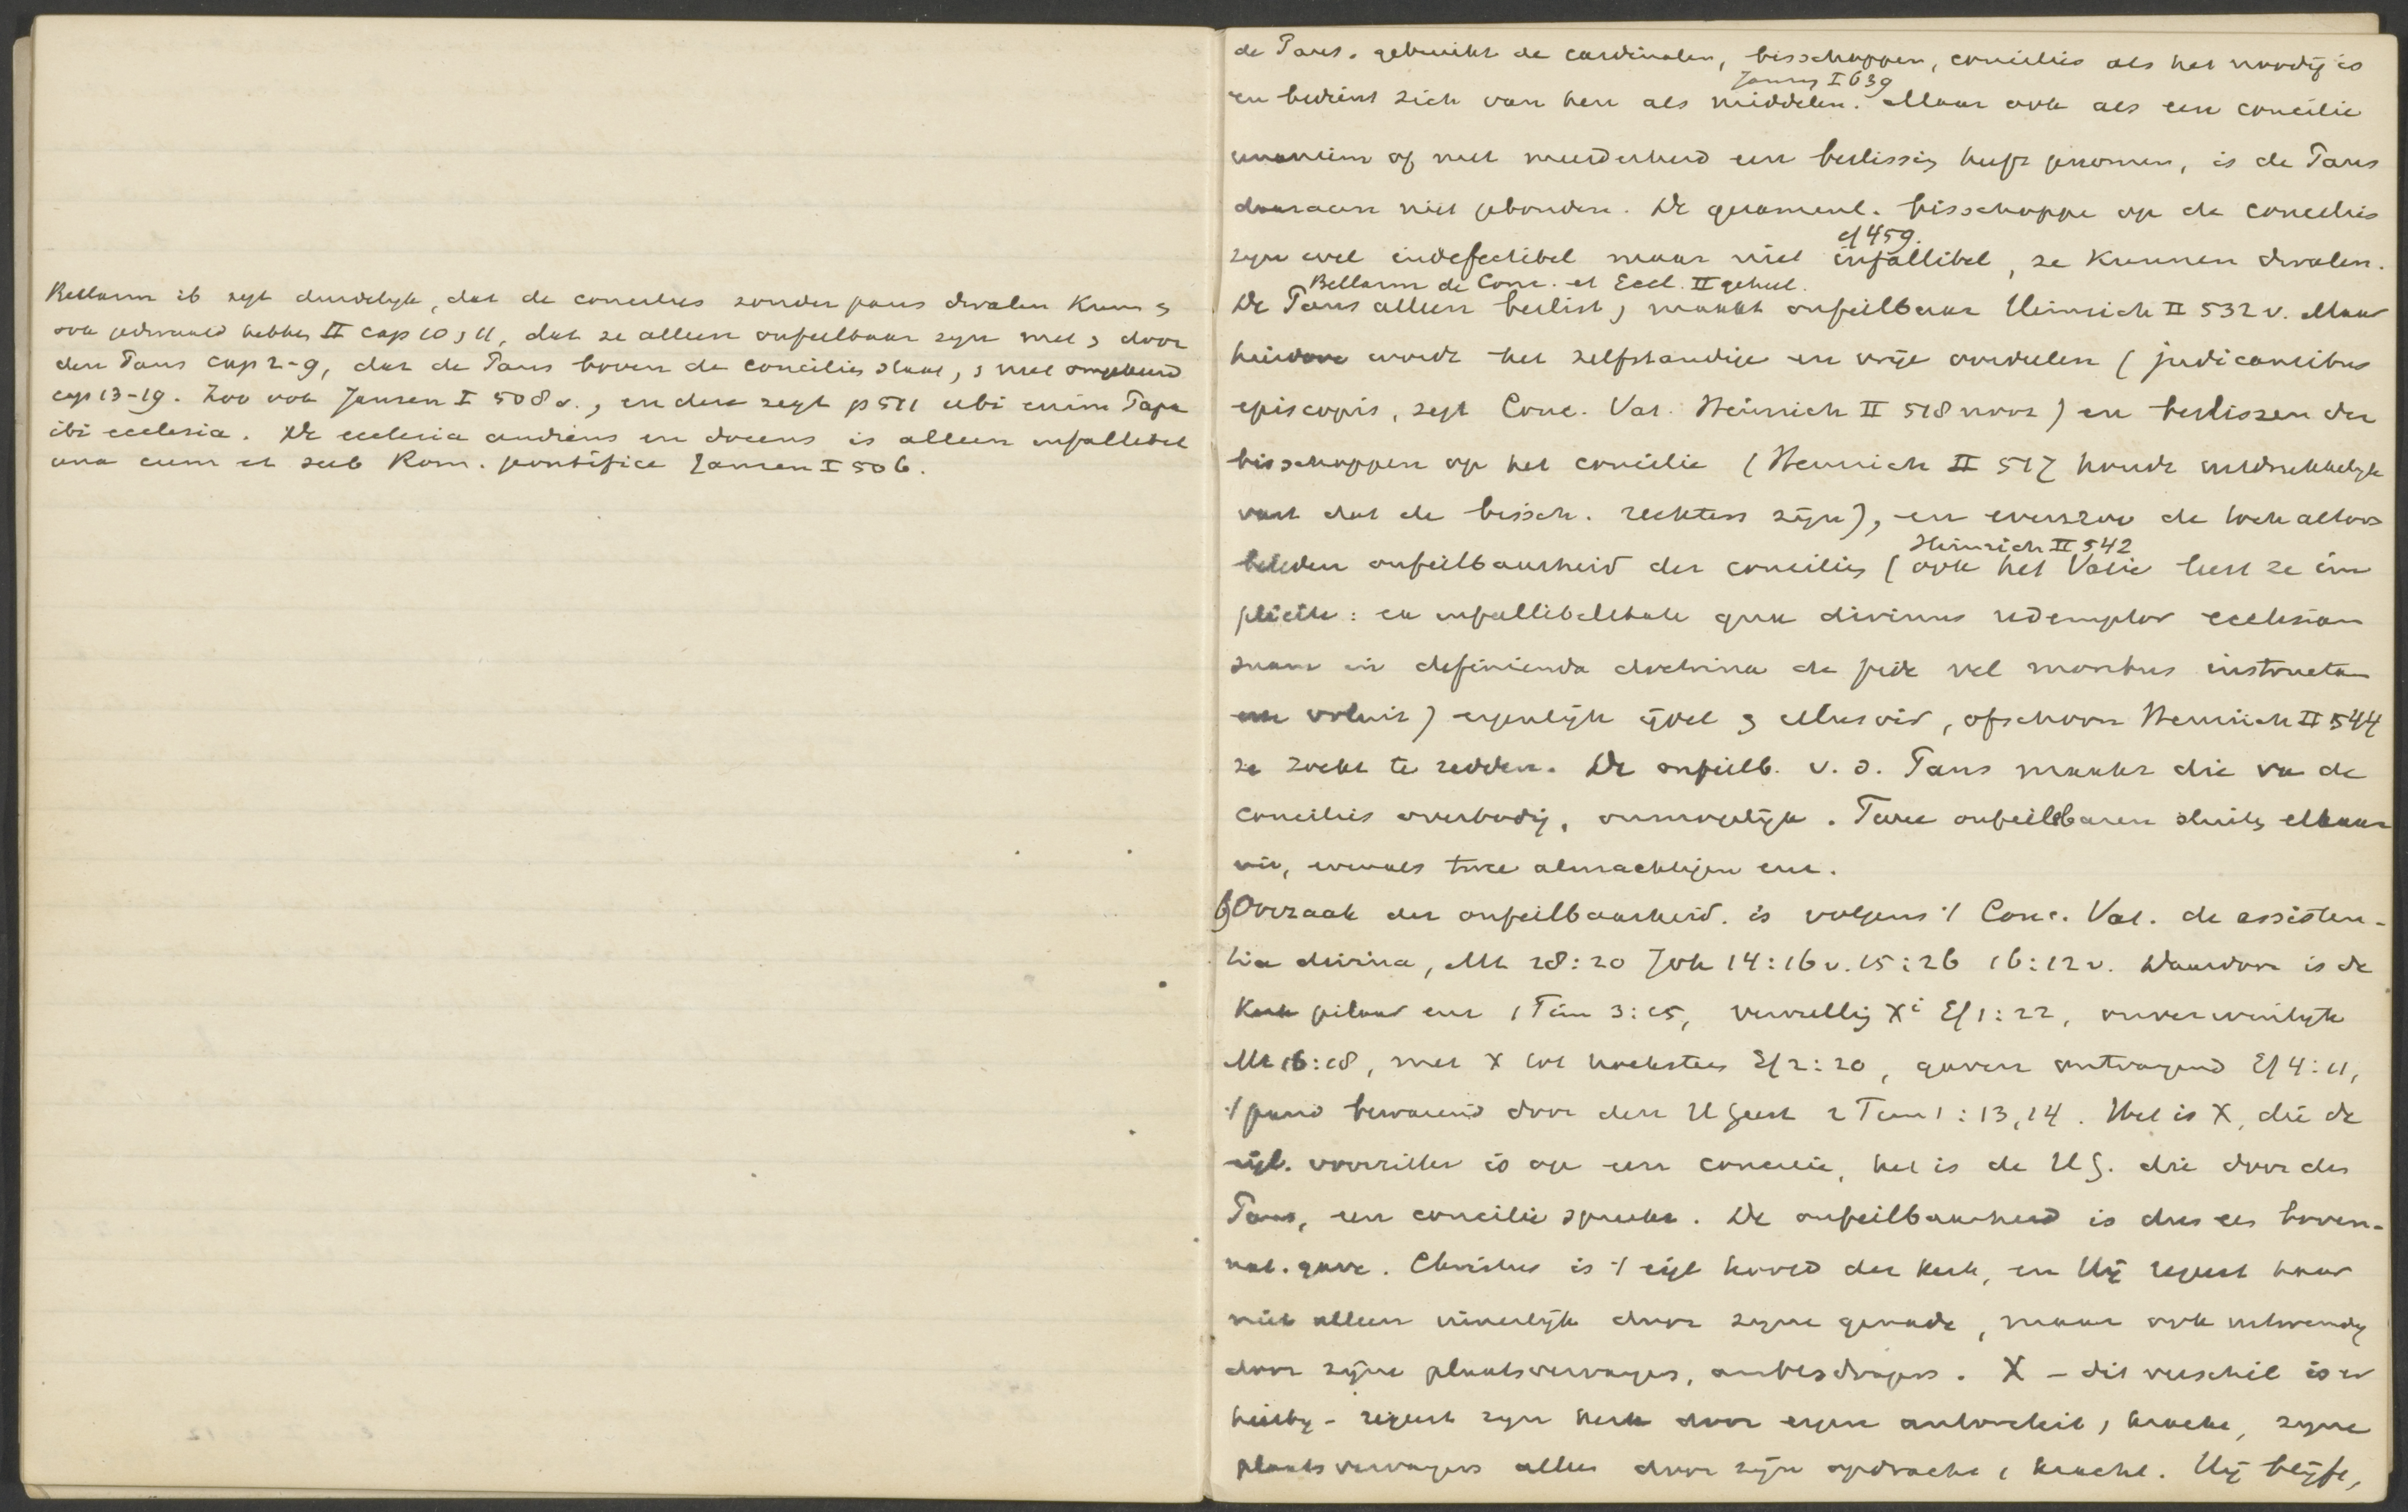 Bellarm ib zegt duidelyk, dat de concilies zonder paus dwalen kunn &
ook gedwaald hebben II cap 10, 11, dat ze alleen onfeilbaar zyn met & door
den Paus cap 2-9, dat de Paus boven de concilies staat, & niet omgekeerd
cap 13-19. Zoo ook Jansen I 508 v., en deze zegt p 511 ubi enim Papa
ibi ecclesia. De ecclesia audiens en docens is alleen infallibel
una cum et sub Rom. pontifice Jansen I 506.
de Paus. gebruikt de cardinalen, bisschoppen, concilies als het noodig is
Jansen I 639
en bedient zich van hen als middelen. Maar ook als een concilie
unaniem of met meerderheid een beslissing heeft genomen, is de Paus
daaraan niet gebonden. De gezamenl. bisschoppe op de concilies
cf 459.
zyn wel indefectibel maar niet infallibel, ze kunnen dwalen.
Bellarm de Conc. et Eccl. II geheel.
De Paus alleen beslist, maakt onfeilbaar Heinrich II 532 v. Maar
hierdoor wordt het zelfstandige en vrije oordeelen (judicantibus
episcopis, zegt Conc. Vat. Heinrich II 518 noot) en beslissen der
bisschoppen op het concilie (Heinrich II 517 houdt uitdrukkelyk
vast dat de bissch. rechters zijn), en evenzoo de toch altoos
Heinrich II 542
beleden onfeilbaarheid der concilies (ook het Vatic leert ze im
pliciete: ea infallibilitate qua divinus redemptor ecclesiam
suam in definienda doctrina de fide vel moribus instructam
esse voluit) eigenlijk ijdel & illusoir, ofschoon Heinrich II 544
ze zoekt te redden. De onfeilb. v. d. Paus maakt die va de
concilies overbodig, onmogelijk. Twee onfeilbaren sluiten elkaar
uit, evenals twee almachtigen enz.
6) Oorzaak der onfeilbaarheid. is volgens 't Conc. Vat. de assisten-
tia divina, Mt 28:20 Joh 14:16 v. 15:26 16:12 v. Daardoor is de
Kerk pilaar enz 1 Tim 3:15, vervulling Xi Ef 1:22, onverwinlyk
Mt 16:18, met X tot hoeksteen Ef 2:20, gaven ontvangend Ef 4:11,
't pand bewarend door den H Geest 2 Tim 1:13,14. Het is X, die de
eigl. voorzitter is op een concilie, het is de H G. die door den
Paus, een concilie spreekt. De onfeilbaarheid is dus een boven-
nat. gave. Christus is 't eigl hoofd der kerk, en Hij regeert haar
niet alleen innerlijk door zyne genade, maar ook uitwendig
door zijne plaatsvervangers, ambtsdragers. X - dit verschil is er
hierby - regeert zyn kerk door eigen autoriteit, kracht, zyne
plaatsvervangers alleen door zijn opdracht, kracht. Hij blijft,